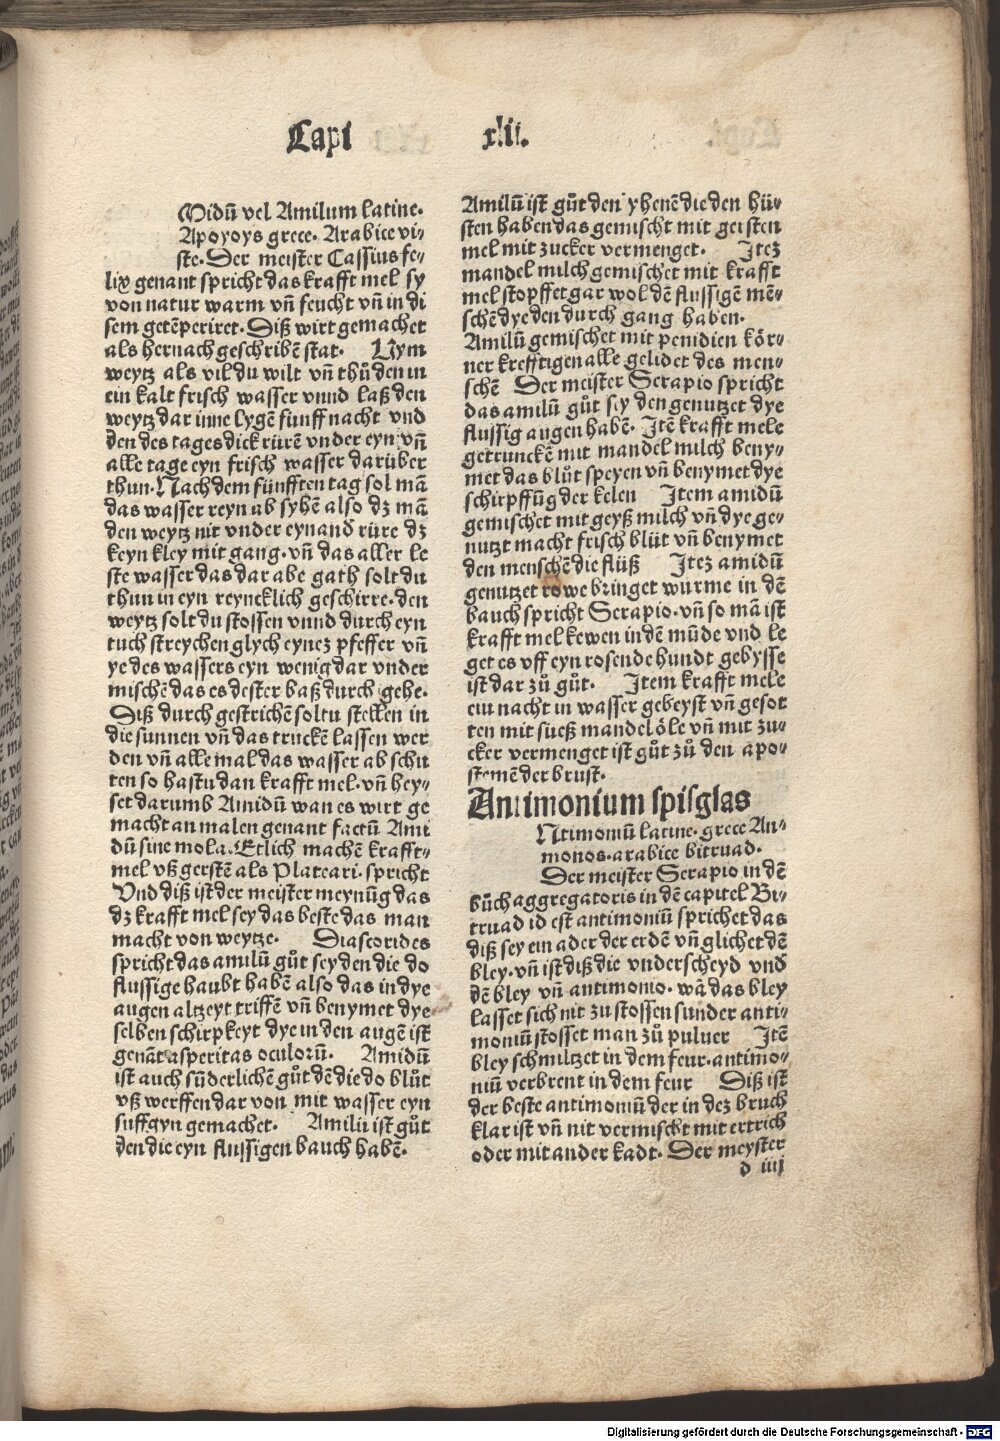 Capi xlii.
Midū vel Amilum latine.
Apoyoys grece. Arabice vi-
ste. Der meister Cassius fe-
lix genant spricht das krafft mel sy
von natur warm vn̄ feucht vn̄ in di
sem getēperiret. Diß wirt gemachet
als hernach geschribē stat. Nym
weytz als vil du wilt vn̄ thů den in
ein kalt frisch wasser vnnd laß den
weytz dar inne lygē fünff nacht vnd
den des tages dick rürē vnder eyn vn̄
alle tage eyn frisch wasser darüber
thun. Nach dem fünfften tag sol mā
das wasser reyn ab syhē also dz mā
den weytz nit vnder eynand rüre dz
keyn kley mit gang. vn̄ das aller le
ste wasser das dar abe gath solt du
thun in eyn reyncklich geschirre. den
weytz solt du stossen vnnd durch eyn
tuch streychen glych eynez pfeffer vn̄
ye des wassers eyn wenig dar vnder
mischē das es dester baß durch gehe.
Diß durch gestrichē soltu stellen in
die sunnen vn̄ das truckē lassen wer
den vn̄ alle mal das wasser ab schu
ten so hastu dan krafft mel. vn̄ hey-
set darumb Amidū wan es wirt ge
macht an malen genant factū Ami
dū sine mola. Etlich machē krafft-
mel vß gerstē als Plateari. spricht
Vnd diß ist der meister meynūg das
dz krafft mel sey das beste das man
macht von weytze. Diascorides
spricht das amilū gůt sey den die do
flussige haubt habē also das in dye
augen altzeyt triffē vn̄ benymet dye
selben schirpkeyt dye in den augē ist
genāt asperitas oculorū. Amidū
ist auch sūderlichē gůt dē die do blůt
vß werffen dar von mit wasser eyn
suffgyn gemachet. Amilū ist gůt
den die eyn flussigen bauch habē.
Amilū ist gůt den yhenē die den hü-
sten haben das gemischt mit gersten
mel mit zucker vermenget. Itez
mandel milch gemischet mit krafft
mel stopffet gar wol dē flussigē mē-
schē dye den durch gang haben.
Amilū gemischet mit penidien kör-
ner krefftigen alle gelidet des men-
schē Der meister Serapio spricht
das amilū gůt sey den genutzet dye
flussig augen habē. Itē krafft mele
getrunckē mit mandel milch beny-
met das blůt speyen vn̄ benymet dye
schirpffūg der kelen Item amidū
gemischet mit geyß milch vn̄ dye ge-
nutzt macht frisch blüt vn̄ benymet
den menschē die flüß Itez amidū
genutzet rowe bringet würme in dē
bauch spricht Serapio. vn̄ so mā ist
krafft mel kewen in dē mūde vnd le
get es vff eyn rosende hundt gebysse
ist dar zů gůt. Item krafft mele
ein nacht in wasser gebeyst vn̄ gesot
ten mit sueß mandel öle vn̄ mit zu-
cker vermenget ist gůt zů den apo-
stemē der brust.
Antimonium spisglas
Ntimoniū latine. grece An-
monos. arabice bitruad.
Der meister Serapio in dē
bůch aggregatoris in dē capitel Bi-
truad id est antimoniū sprichet das
diß sey ein ader der erdē vn̄ glichet dē
bley. vn̄ ist diß die vnderscheyd vnd
dē bley vn̄ antimonio. wā das bley
lasset sich nit zu stossen sunder anti-
moniū stosset man zů puluer Itē
bley schmiltzet in dem feur. antimo-
niū verbrent in dem feur Diß ist
der beste antimoniū der in dez bruch
klar ist vn̄ nit vermischt mit ertrich
oder mit ander kadt. Der meyster
d iiij
Digitalisierung gefördert durch die Deutsche Forschungsgemeinschaft - DFG